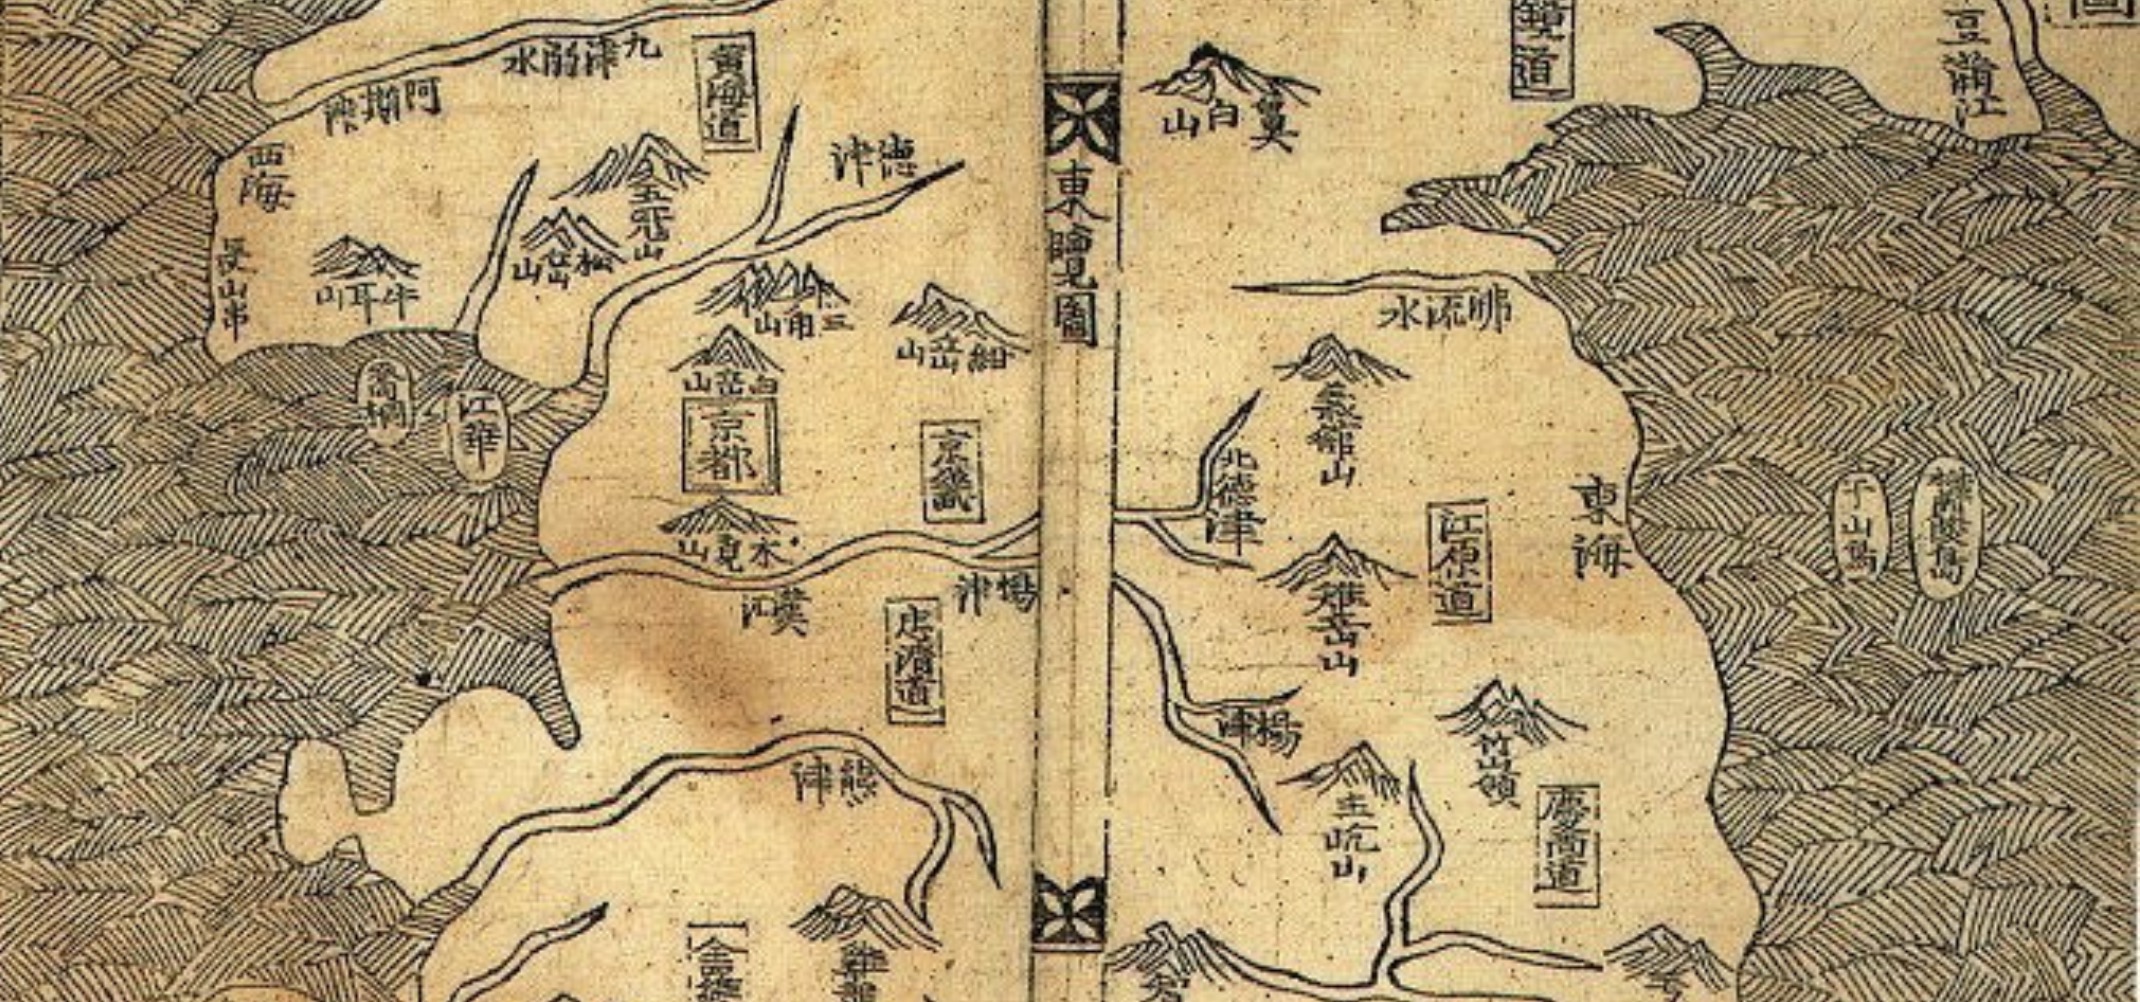 圖
豆滿江
鏡道
長白山
東覽圖
沸流水
義館山
北德津
江原道
東海
于山島
鬱陵島
雉岳山
楊津
竹嶺
主屹山
慶尚道
黃海道
九津溺水
阿斯津
西海
長山串
牛耳山
五冠山
松岳山
德津
三角山
紺岳山
白岳山
京都
京畿
喬桐
江華
木覓山
漢江
楊津
忠清道
熊津
全羅
雞龍